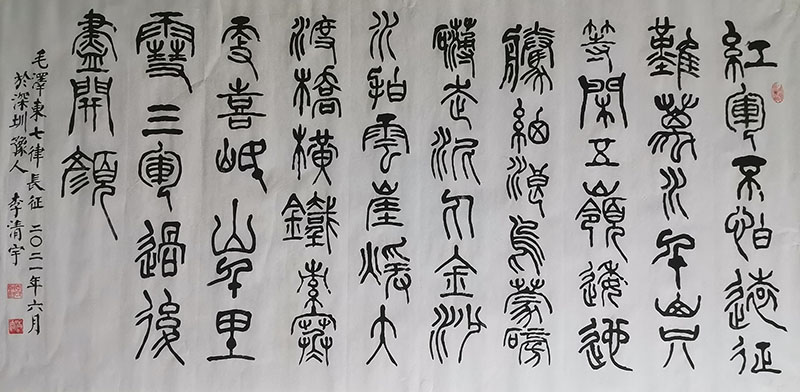 紅軍不怕遠征
難萬水千山只
等閑五嶺逶迤
騰細浪烏蒙磅
礴走泥丸金沙
水拍雲崖暖大
渡橋橫鐵索寒
更喜岷山千里
雪三軍過後
盡開顏
毛澤東七律長征 二〇二一年六月
於深圳豫人 李清宇